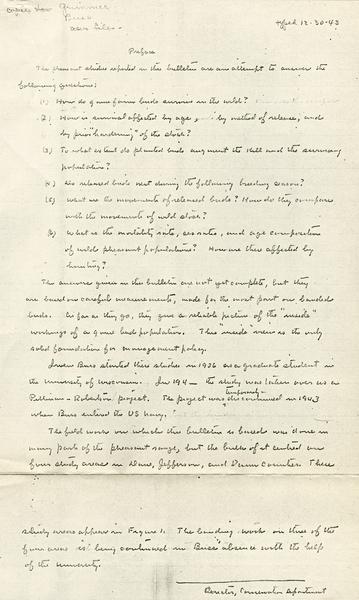 Copies to Grimmer
Buss
own files
typed 12-30-43
Preface
The pheasant studies reported in this bulletin are an attempt to answer the
following questions:
(1) How do game farm birds survive in the wild?
(2) How is survival affected by age, by method of release, and
by prior "hardening" of the stock?
(3) To what extent do planted birds augment the kill and the surviving
population?
(4) Do released birds nest during the following breeding season?
(5) What are the movements of released birds? How do they compare
with the movements of wild stock?
(6) What is the mortality rate, sex ratio, and age composition
of wild pheasant populations? How are these affected by
hunting?
The answers given in this bulletin are not yet complete, but they
are based on careful measurements, made for the most part on banded
birds. As far as they go, they give a reliable picture of the "inside"
workings of a game bird population. This "inside" view is the only
solid foundation for management policy.
Irven Buss started these studies in 1936 as a graduate student in
the University of Wisconsin. In 194— the study was taken over as a
Pittman-Robertson project. The project was temporarily discontinued in 1943
when Buss entered the US Navy.
The field work on which this bulletin is based was done in
many parts of the pheasant range, but the bulk of it centred on
four study areas in Dane, Jefferson, and Dunn Counties. These
study areas appear in Figure 1. The banding work on three of the
four areas is being continued in Buss' absence with the help
of the University.
Director, Conservation Department